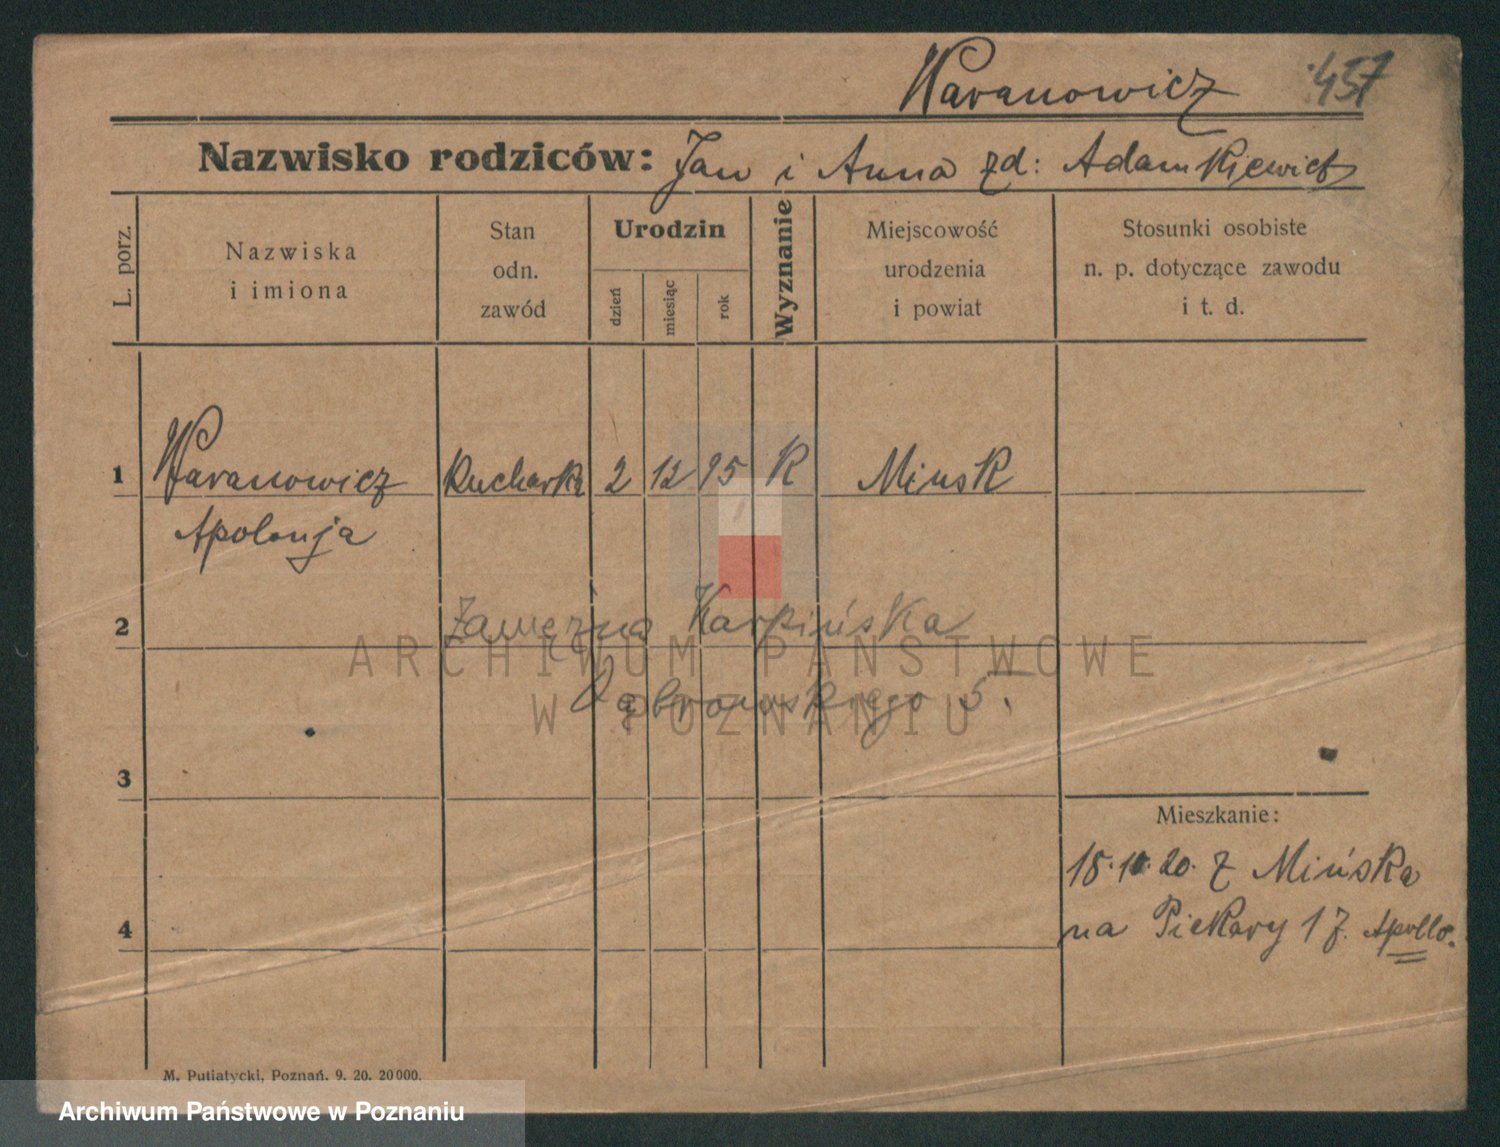 Waranowicz 457
Nazwisko rodziców: Jan i Anna zd: Adamkiewicz
L. porz.
Nazwiska
i imiona
Stan
odn.
zawód
Urodzin
dzień
miesiąc
rok
Wyznanie
Miejscowość
urodzenia
i powiat
Stosunki osobiste
n. p. dotyczące zawodu
i t. d.
1 Waranowicz Kucharka 2 12 95 K Minsk
Apolonja
2 Zamężna Karpińska
Dąbrowskiego 5.
3
Mieszkanie:
15. 11. 20. z Mińska
4 na Piekary 17. Apollo.
M. Putiatycki, Poznań. 9. 20. 20000.
ARCHIWUM PAŃSTWOWE
W POZNANIU
Archiwum Państwowe w Poznaniu